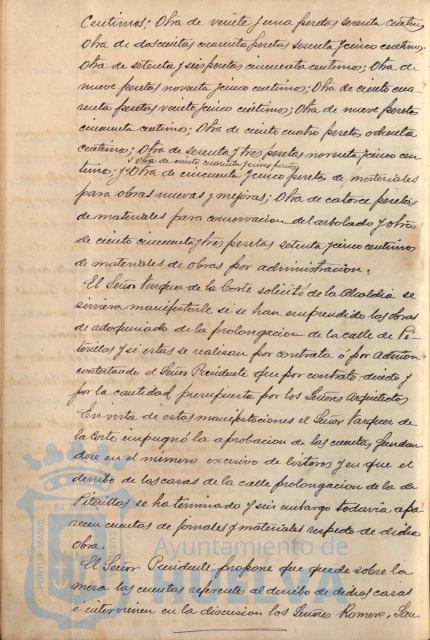 Centimos; Otra de veinte y una pesetas sesenta centimos
Otra de doscientas cuarenta pesetas sesenta y cinco centimos;
Otra de setenta y seis pesetas cincuenta centimos; Otra de
nueve pesetas noventa y cinco centimos; Otra de ciento cua
renta pesetas veinte y cinco centimos; Otra de nueve pesetas
cincuenta centimos; Otra de ciento cuatro pesetas ochenta
centimos; Otra de sesenta y tres pesetas noventa y cinco cen
y Otra de ciento cuarenta y cinco pesetas
timos; y Otra de cincuenta y cinco pesetas de materiales
para obras nuevas y mejoras; Otra de catorce pesetas
de materiales para conservacion del arbolado y otra
de ciento cincuenta y tres pesetas setenta y cinco centimos
de materiales de obras por administracion.
El Señor Vazquez de la Corte solicitó de la Alcaldia se
sirviera manifestarle si se han emprendido las obras
de adoquinado de la prolongacion de la calle de Pi-
torillos y si estas se realizan por contrata ó por admon
contestando el Señor Presidente que por contrato directo y
por la cantidad presupuesta por los Señores Arquitectos
En vista de estas manifestaciones el Señor Vazquez de
la Corte impugnó la aprobacion de las cuentas, fundan
dose en el número excesivo de listeros y en que el
derribo de las casas de la calle prolongacion de la de
se ha terminado y sin embargo todavia apa
recen cuentas de jornales y materiales respecto de dicha
obra.
El Señor Presidente propone que quede sobre la
mesa las cuentas referentes al derribo de dichas casas
é intervienen en la discusion los Señores Romero, San
Ayuntamiento de
HUELVA
PORTUS MARIS